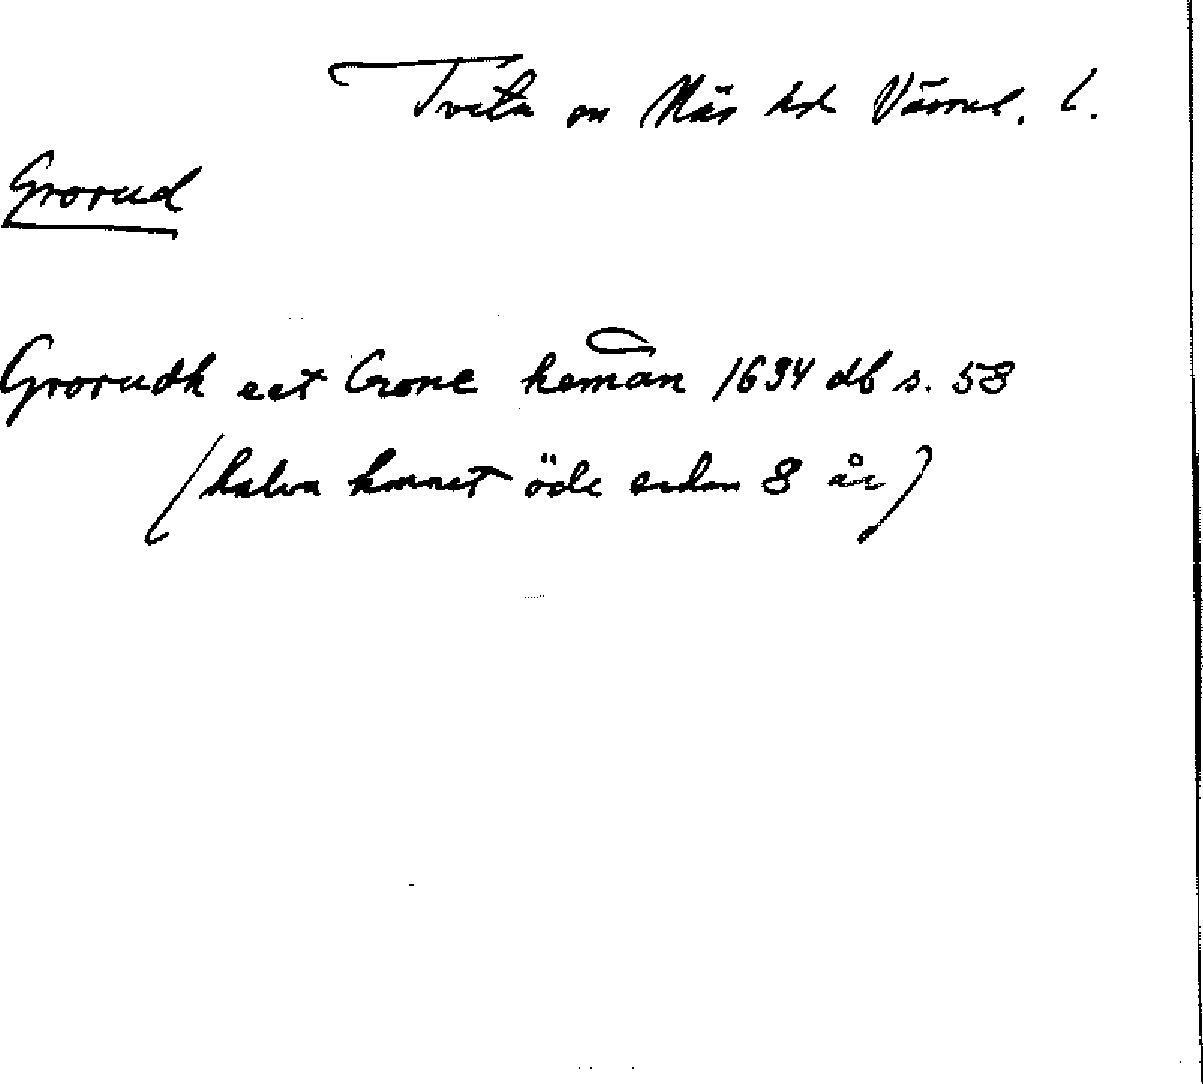 Tveta sn Näs hd Värml. l.
Grorud
Grorudh eet Crone heman 1694 db s. 58
(halva hemmet öde sedan 8 år)